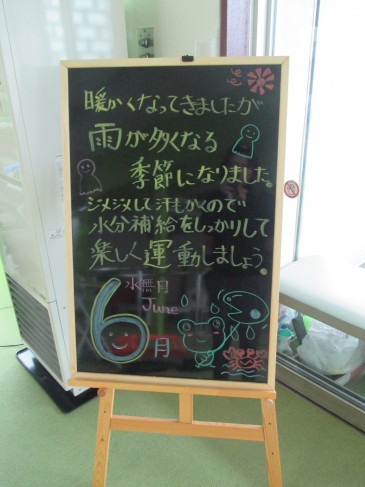 暖かくなってきましたが
雨が多くなる
季節になりました。
ジメジメして汗もかくので
水分補給をしっかりして
楽しく運動しましょう。
水無月
June
6月